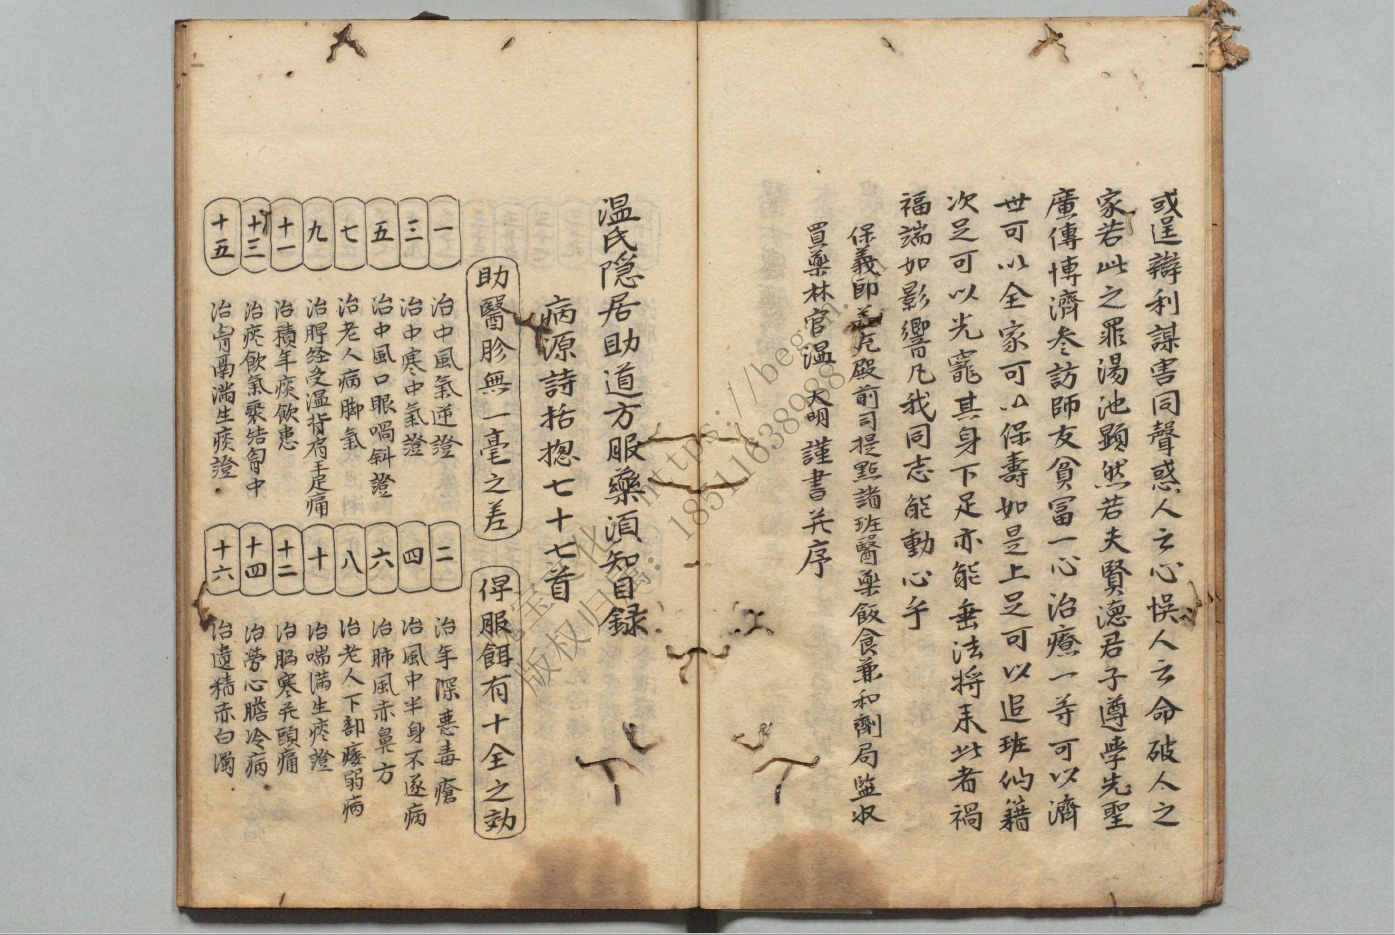 或逞辯利謀害同聲惑人云心悞人云命破人之
家若此之罪湯池顕然若夫賢德君子遵學先聖
廣傳博濟叅訪師友貧富一心治療一等可以濟
世可以全家可以保壽如是上足可以追班仙籍
次足可以光竉其身下足亦能垂法将来此者禍
福端如影響凡我同志能動心乎
保義郎差充殿前司提點諸班醫藥飯食兼和劑局監収
買藥林官温大明謹書并序
温氏隐居助道方服藥湏知目録
病源詩括揔七十七首
助醫胗無一毫之差
俾服餌有十全之効
一 治中風氣逆證
二 治年深悪毒瘡
三 治中寒中氣證
四 治風中半身不遂病
五 治中風口眼喎斜證
六 治肺風赤鼻方
七 治老人病脚氣
八 治老人下部痿弱病
九 治脾経受温背肩手足痛
十 治喘满生痰證
十一 治積年痰飲患
十二 治腦寒夹頭痛
十三 治痰飲氣乘结胷中
十四 治勞心膽冷病
十五 治胷鬲满生痰證
十六 治遺精赤白濁
https://begbh.
18511638988
版权归属: